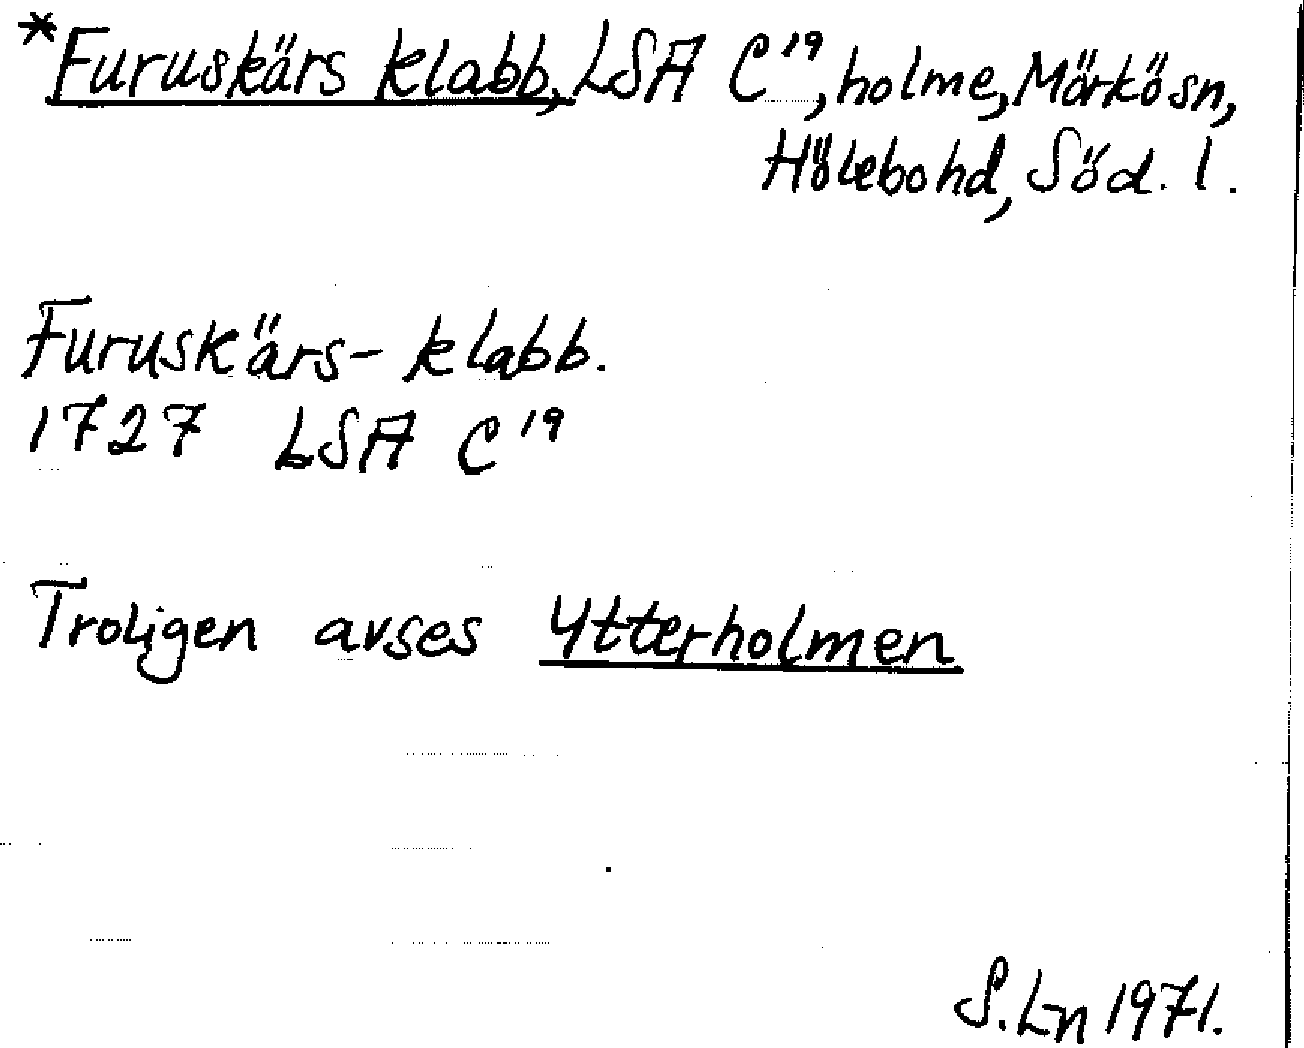 *Furuskärs klabb, LSA C¹⁹, holme, Mörkösn,
Hölebohd, Söd. l.
Furuskärs- klabb.
1727 LSA C¹⁹
Troligen avses Ytterholmen
S. Ln 1971.